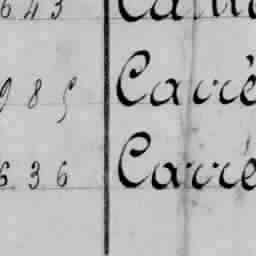 643
985 Carrè
636 Carré